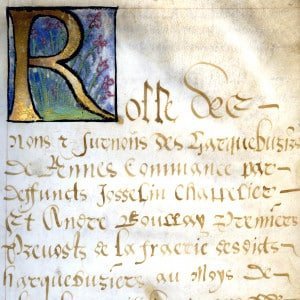 Rolle des
Noms & surnoms des harquebuziers
de Rennes Commance par
deffuncts Josselin Chappelier
Et André Boullay Premiers
Prevosts de la fraerie desdicts
harquebuziers au moys de